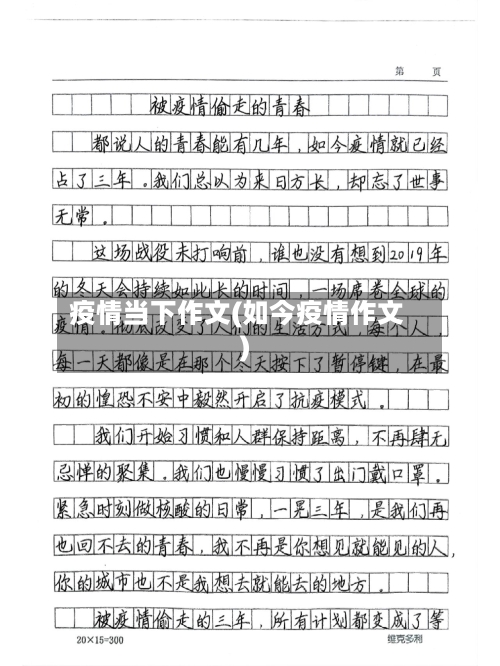 第 页
被疫情偷走的青春
都说人的青春能有几年，如今疫情就已经
占了三年。我们总以为来日方长，却忘了世事
无常。
这场战役未打响前，谁也没有想到2019年
的冬天会持续如此长的时间，一场席卷全球的
疫情，彻底改变了人们的生活方式，每个人
疫情当下作文(如今疫情作文
)
每一天都像是在那个冬天按下了暂停键，在最
初的惶恐不安中毅然开启了抗疫模式。
我们开始习惯和人群保持距离，不再肆无
忌惮的聚集。我们也慢慢习惯了出门戴口罩。
紧急时刻做核酸的日常，一晃三年，是我们再
也回不去的青春，我不再是你想见就能见的人，
你的城市也不是我想去就能去的地方。
被疫情偷走的三年，所有计划都变成了等
20×15=300
维克多利